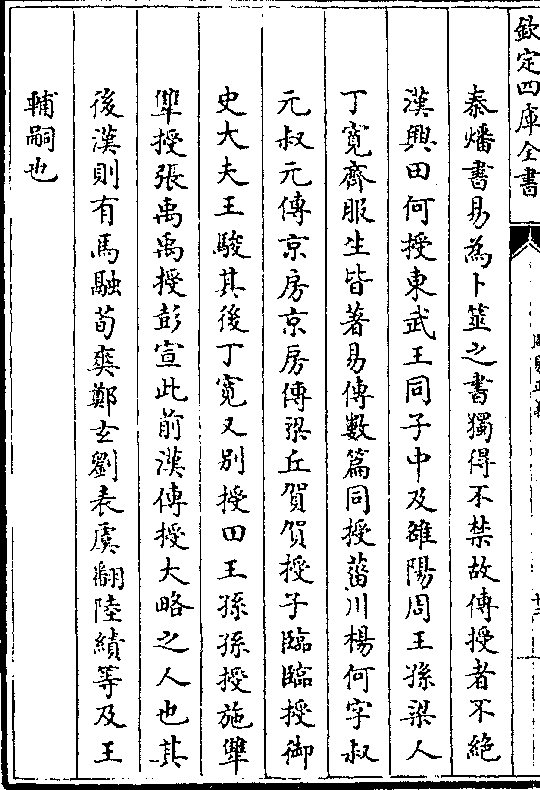 欽定四庫全書
秦燔書易為卜筮之書獨得不禁故傳授者不絕
漢興田何授東武王同子中及雒陽周王孫梁人
丁寛齊服生皆著易傳數篇同授菑川楊何字叔
元叔元傳京房京房傳梁丘賀賀授子臨臨授御
史大夫王駿其後丁寛又别授田王孫孫授施犨
犨授張禹禹授彭宣此前漢傳授大略之人也其
後漢則有馬融荀爽鄭玄劉表虞翻陸績等及王
輔嗣也